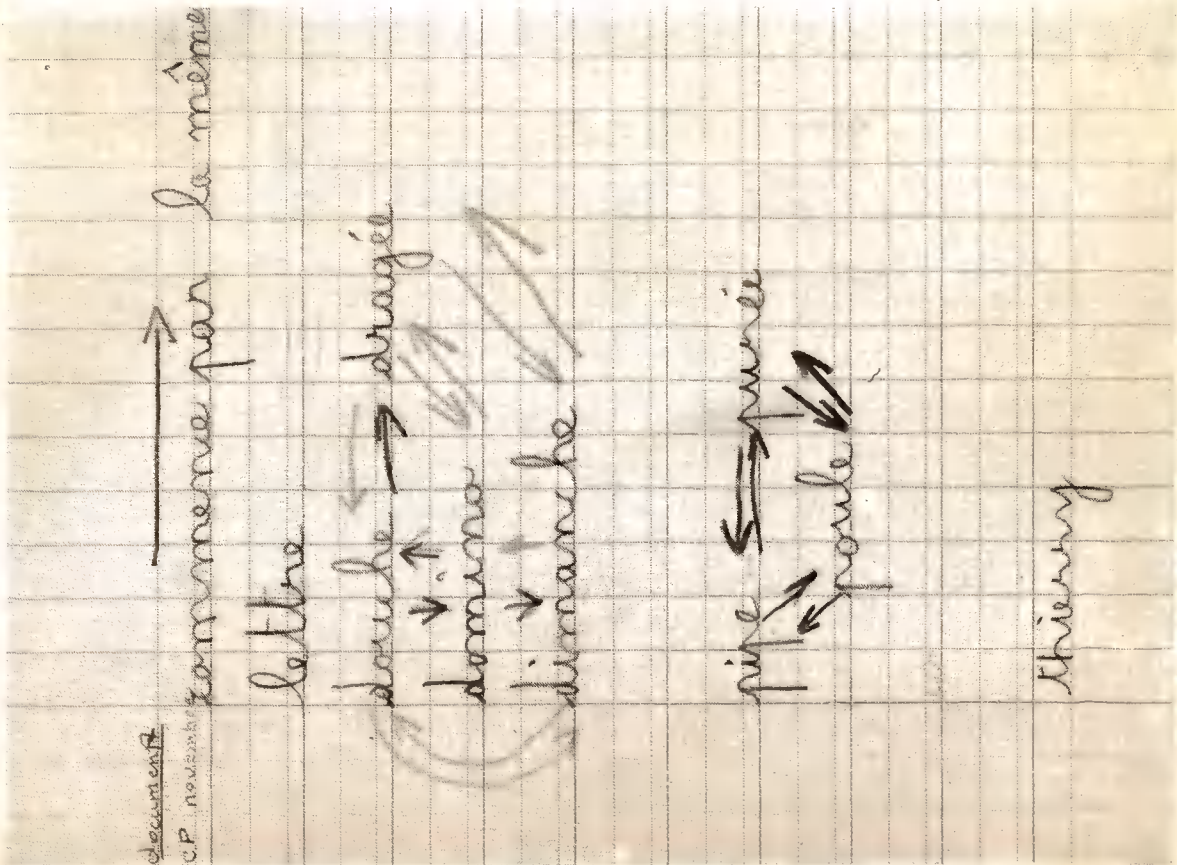 document
C.P novembre
commence par la même
lettre
douche dragée
domino
dimanche
pipe purée
poule
thierry